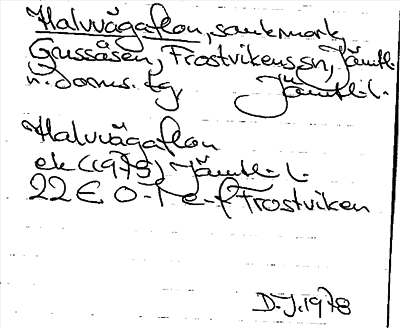 Halvvägaflon, sankmark
Gussåsen, Frostvikens sn, Jämtl.
n. doms. tg, Jämtl. l.
Halvvägaflon
ek (1973) Jämtl. l.
22E 0-1 e-f Frostviken
D.J. 1978